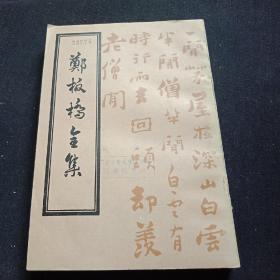 一間茅屋在深山白雲
半間僧半間白雲有
時行雨去回頭却羨
老僧閒
鄭板橋全集